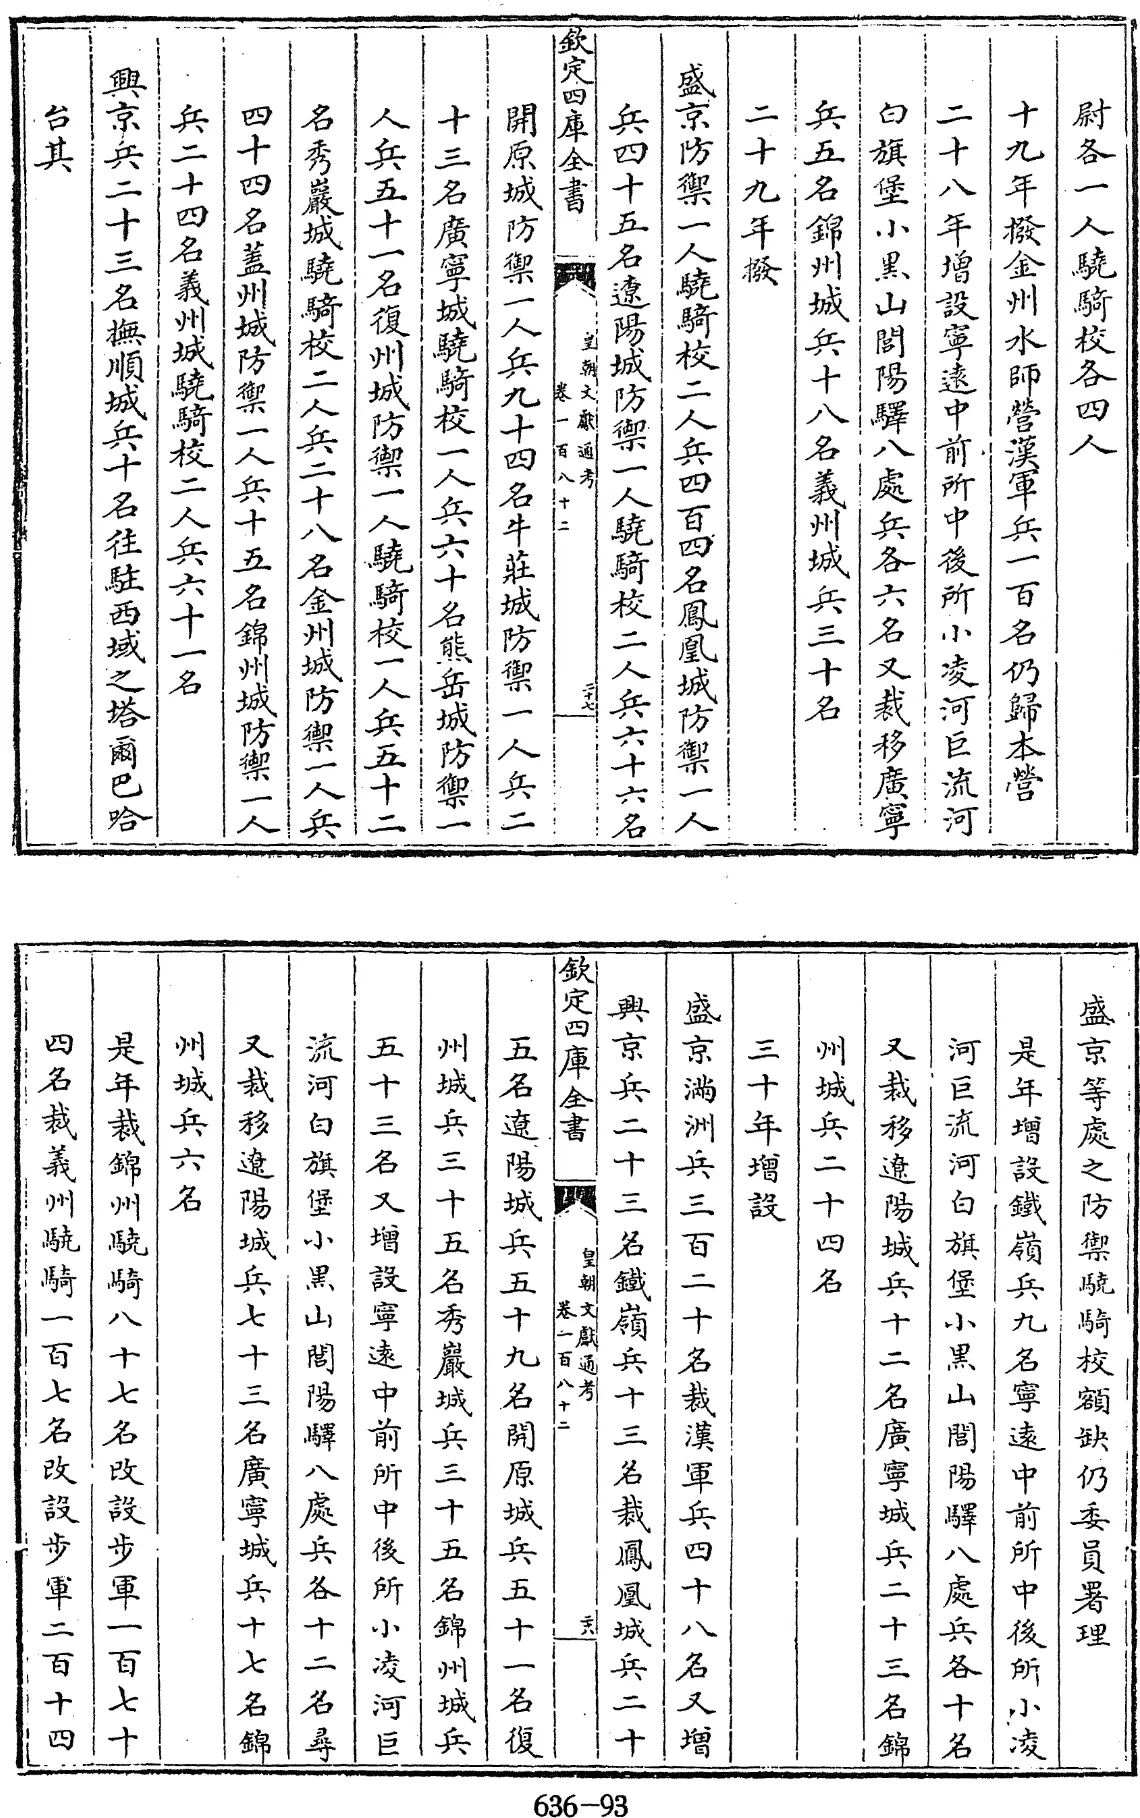 尉各一人驍騎校各四人
十九年撥金州水師營漢軍兵一百名仍歸本營
二十八年增設寧遠中前所中後所小凌河巨流河
白旗堡小黑山閭陽驛八處兵各六名又裁移廣寧
兵五名錦州城兵十八名義州城兵三十名
二十九年撥
盛京防禦一人驍騎校二人兵四百四名鳳凰城防禦一人
兵四十五名遼陽城防禦一人驍騎校二人兵六十六名
欽定四庫全書
皇朝文獻通考
卷一百八十二
二十七
開原城防禦一人兵九十四名牛莊城防禦一人兵二
十三名廣寧城驍騎校一人兵六十名熊岳城防禦一
人兵五十一名復州城防禦一人驍騎校一人兵五十二
名秀巖城驍騎校二人兵二十八名金州城防禦一人兵
四十四名蓋州城防禦一人兵十五名錦州城防禦一人
兵二十四名義州城驍騎校二人兵六十一名
興京兵二十三名撫順城兵十名往駐西域之塔爾巴哈
台其
盛京等處之防禦驍騎校額缺仍委員署理
是年增設鐵嶺兵九名寧遠中前所中後所小凌
河巨流河白旗堡小黑山閭陽驛八處兵各十名
又裁移遼陽城兵十二名廣寧城兵二十三名錦
州城兵二十四名
三十年增設
盛京滿洲兵三百二十名裁漢軍兵四十八名又增
興京兵二十三名鐵嶺兵十三名裁鳳凰城兵二十
欽定四庫全書
皇朝文獻通考
卷一百八十二
二十八
五名遼陽城兵五十九名開原城兵五十一名復
州城兵三十五名秀巖城兵三十五名錦州城兵
五十三名又增設寧遠中前所中後所小凌河巨
流河白旗堡小黑山閭陽驛八處兵各十二名尋
又裁移遼陽城兵七十三名廣寧城兵十七名錦
州城兵六名
是年裁錦州驍騎八十七名改設步軍一百七十
四名裁義州驍騎一百七名改設步軍二百十四
636-93